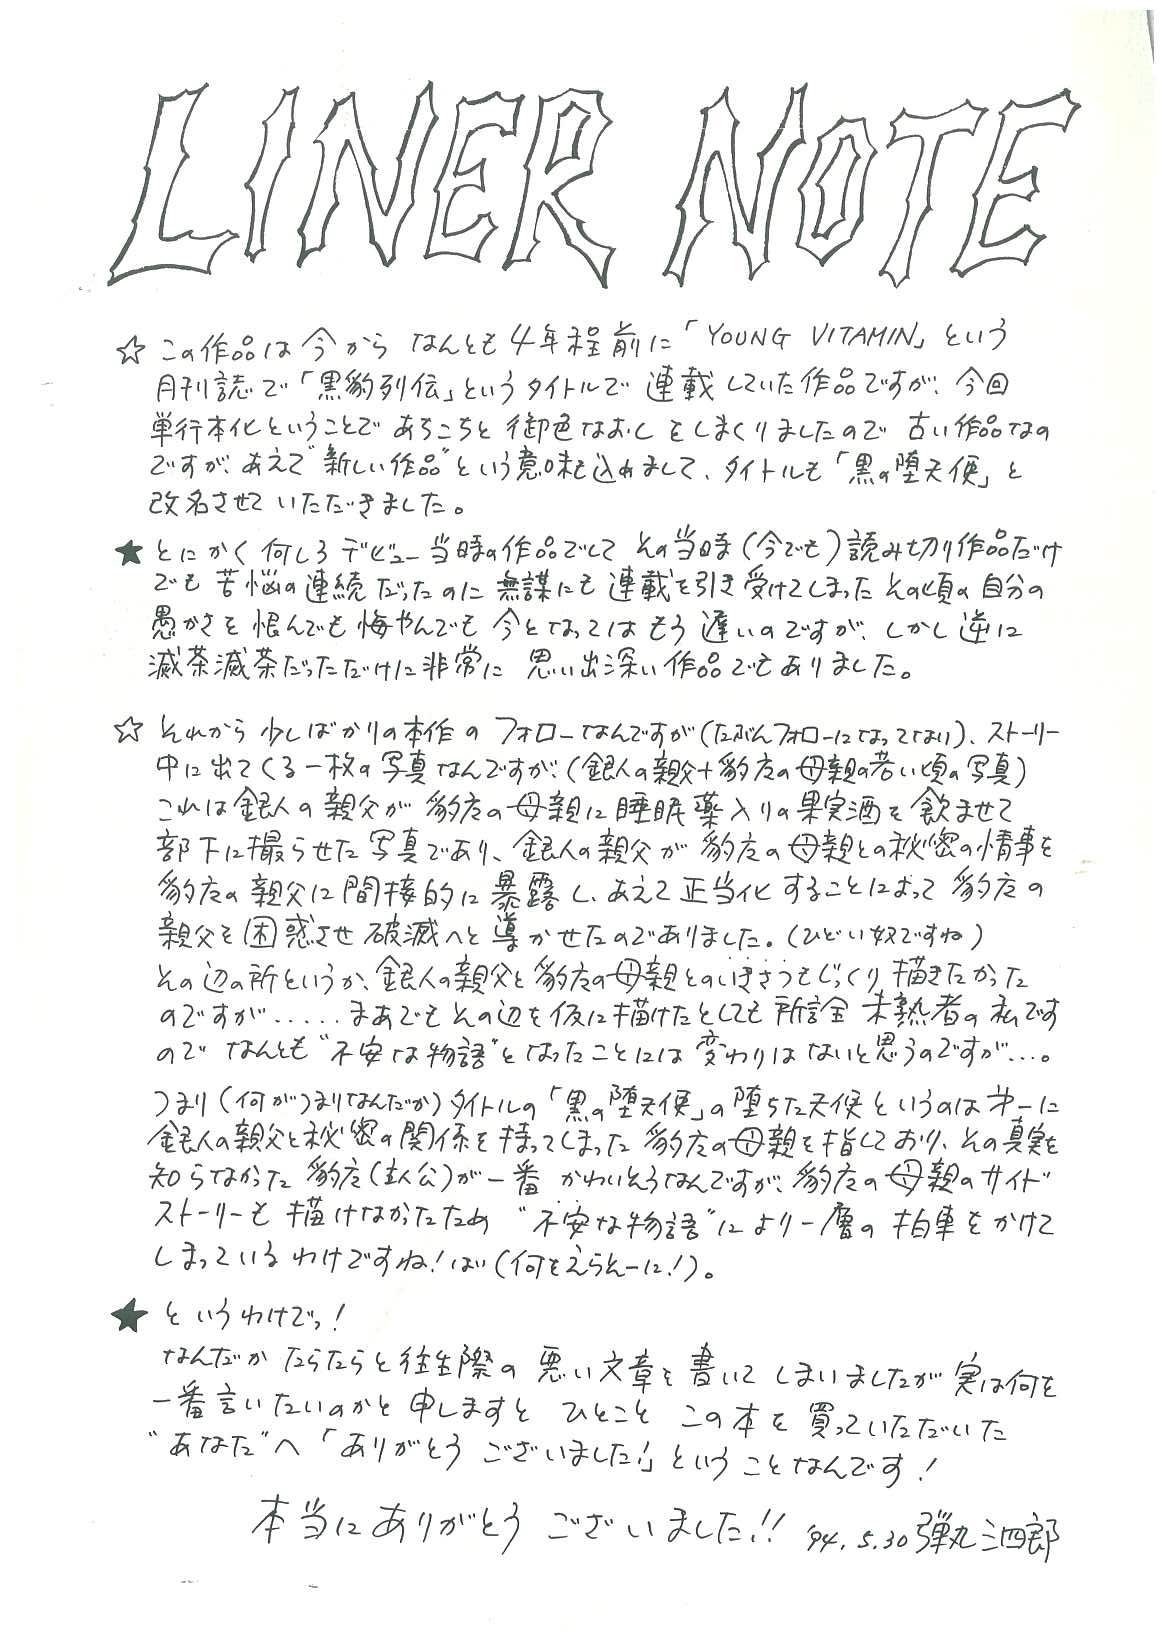 LINER NOTE
☆ この作品は今から なんとも4年程前に「YOUNG VITAMIN」という
月刊誌で「黒豹列伝」というタイトルで 連載していた作品ですが、今回
単行本化ということで あちこちと 御色なおしをしまくりましたので 古い作品なの
ですが、あえて"新しい作品"という意味も込めまして、タイトルも「黒の堕天使」と
改名させていただきました。
★ とにかく何しろデビュー当時の作品でして その当時(今でも)読み切り作品だけ
でも 苦悩の連続だったのに 無謀にも 連載を引き受けてしまった その頃の自分の
愚かさを 恨んでも悔やんでも 今となってはもう遅いのですが、しかし逆に
滅茶滅茶だっただけに非常に 思い出深い作品でもありました。
☆ それから 少しばかりの本作の フォローなんですが(たぶんフォローになってない)、ストーリー
中に出てくる一枚の写真なんですが、(銀人の親父+豹彦の母親の若い頃の写真)
これは銀人の親父が 豹彦の母親に睡眠薬入りの果実酒を飲ませて
部下に撮らせた写真であり、銀人の親父が 豹彦の母親との秘密の情事を
豹彦の親父に間接的に暴露し、あえて正当化することによって 豹彦の
親父を困惑させ 破滅へと導かせたのでありました。(ひどい奴ですね)
その辺の所というか、銀人の親父と豹彦の母親とのいきさつもじっくり描きたかった
のですが.....まあでもその辺を仮に描けたとしても所詮 未熟者の私です
ので なんとも"不安な物語"となったことには 変わりはないと思うのですが...。
つまり(何がつまりなんだか)タイトルの「黒の堕天使」の堕ちた天使というのは才一に
銀人の親父と秘密の関係を持ってしまった 豹彦の母親を指しており、その真実を
知らなかった 豹彦(主人公)が一番 かわいそうなんですが、豹彦の母親のサイド
ストーリーも 描けなかったため "不安な物語"により一層の拍車をかけて
しまっているわけですね!はい(何をえらそーに!)。
★ というわけでっ!
なんだか たらたらと往生際の悪い文章を書いてしまいましたが 実は何を
一番言いたいのかと申しますと ひとこと この本を買っていただいた
"あなた"へ「ありがとう ございました!」ということなんです!
本当にありがとう ございました!! '94.5.30 弾丸三四郎